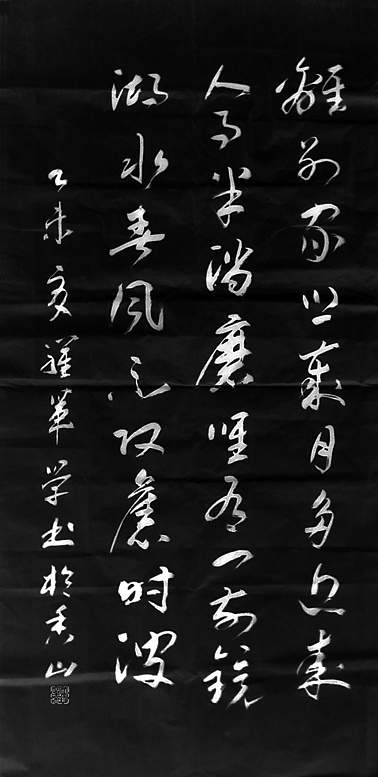 離别家鄉歲月多近來
人事半消磨唯有門前鏡
湖水春風不改舊時波
乙未夏 学书於香山